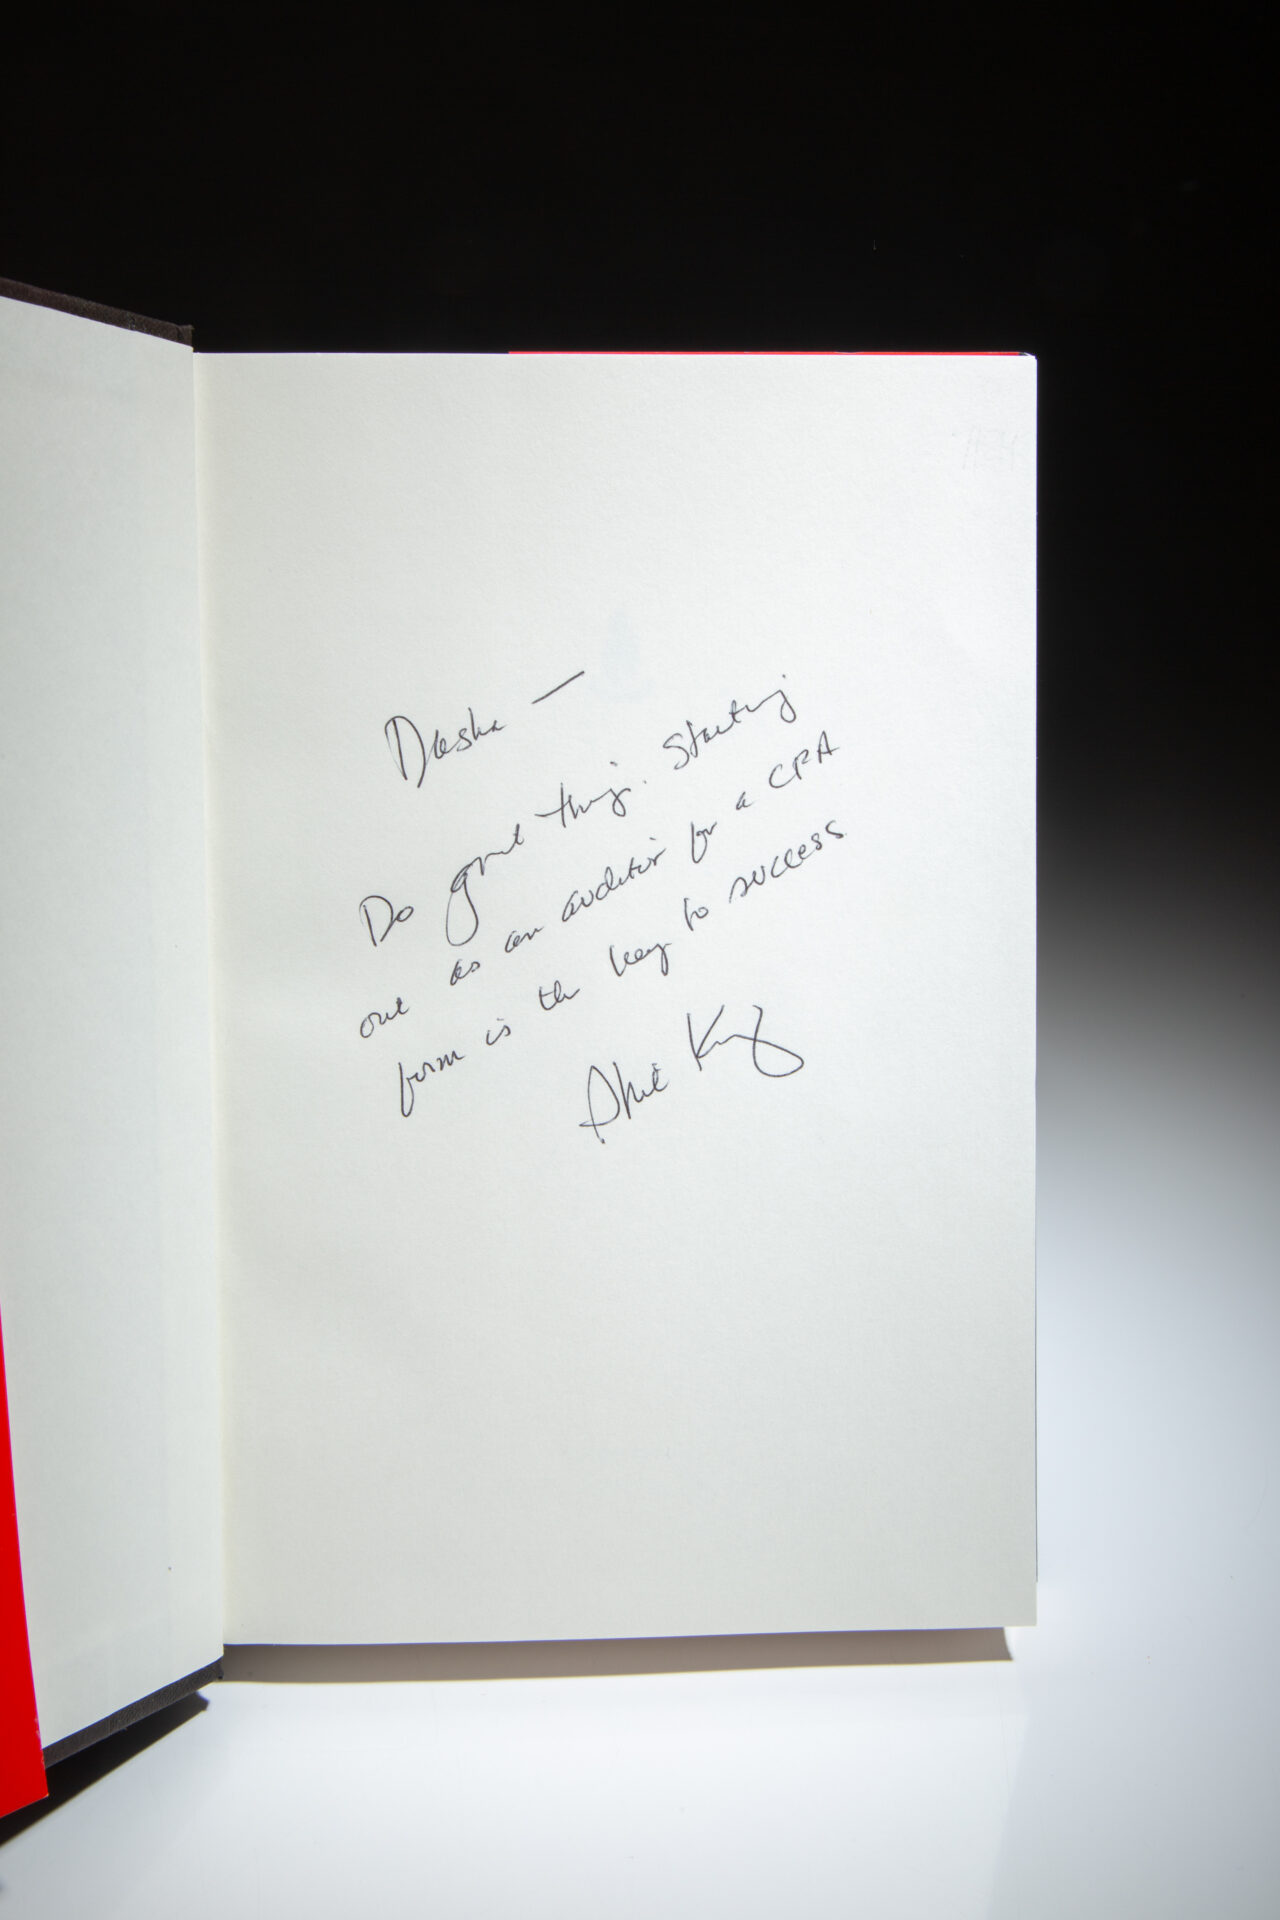 Dasha —
Do great things. Starting
out as an auditor for a CPA
firm is the key to success
Phil Knight